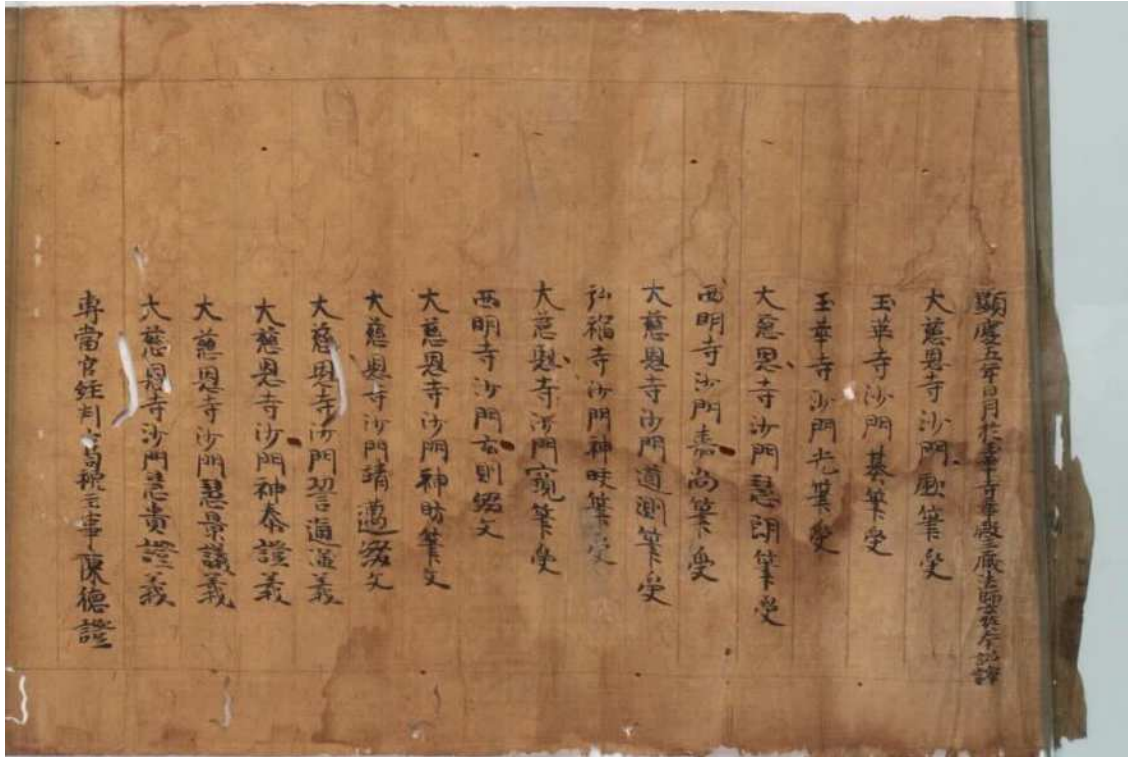 顯慶五年 月於玉華寺 三藏法師玄奘奉詔譯
大慈恩寺沙門 筆受
玉華寺沙門基筆受
玉華寺沙門光筆受
大慈恩寺沙門慧朗筆受
西明寺沙門嘉尚筆受
大慈恩寺沙門道測筆受
弘福寺沙門神 筆受
大慈恩寺沙門 筆受
西明寺沙門玄則綴文
大慈恩寺沙門神昉筆文
大慈恩寺沙門靖邁綴文
大慈恩寺沙門 通 義
大慈恩寺沙門神泰證義
大慈恩寺沙門慧景議義
大慈恩寺沙門慧貴證義
專當官經判官 主事陳德證